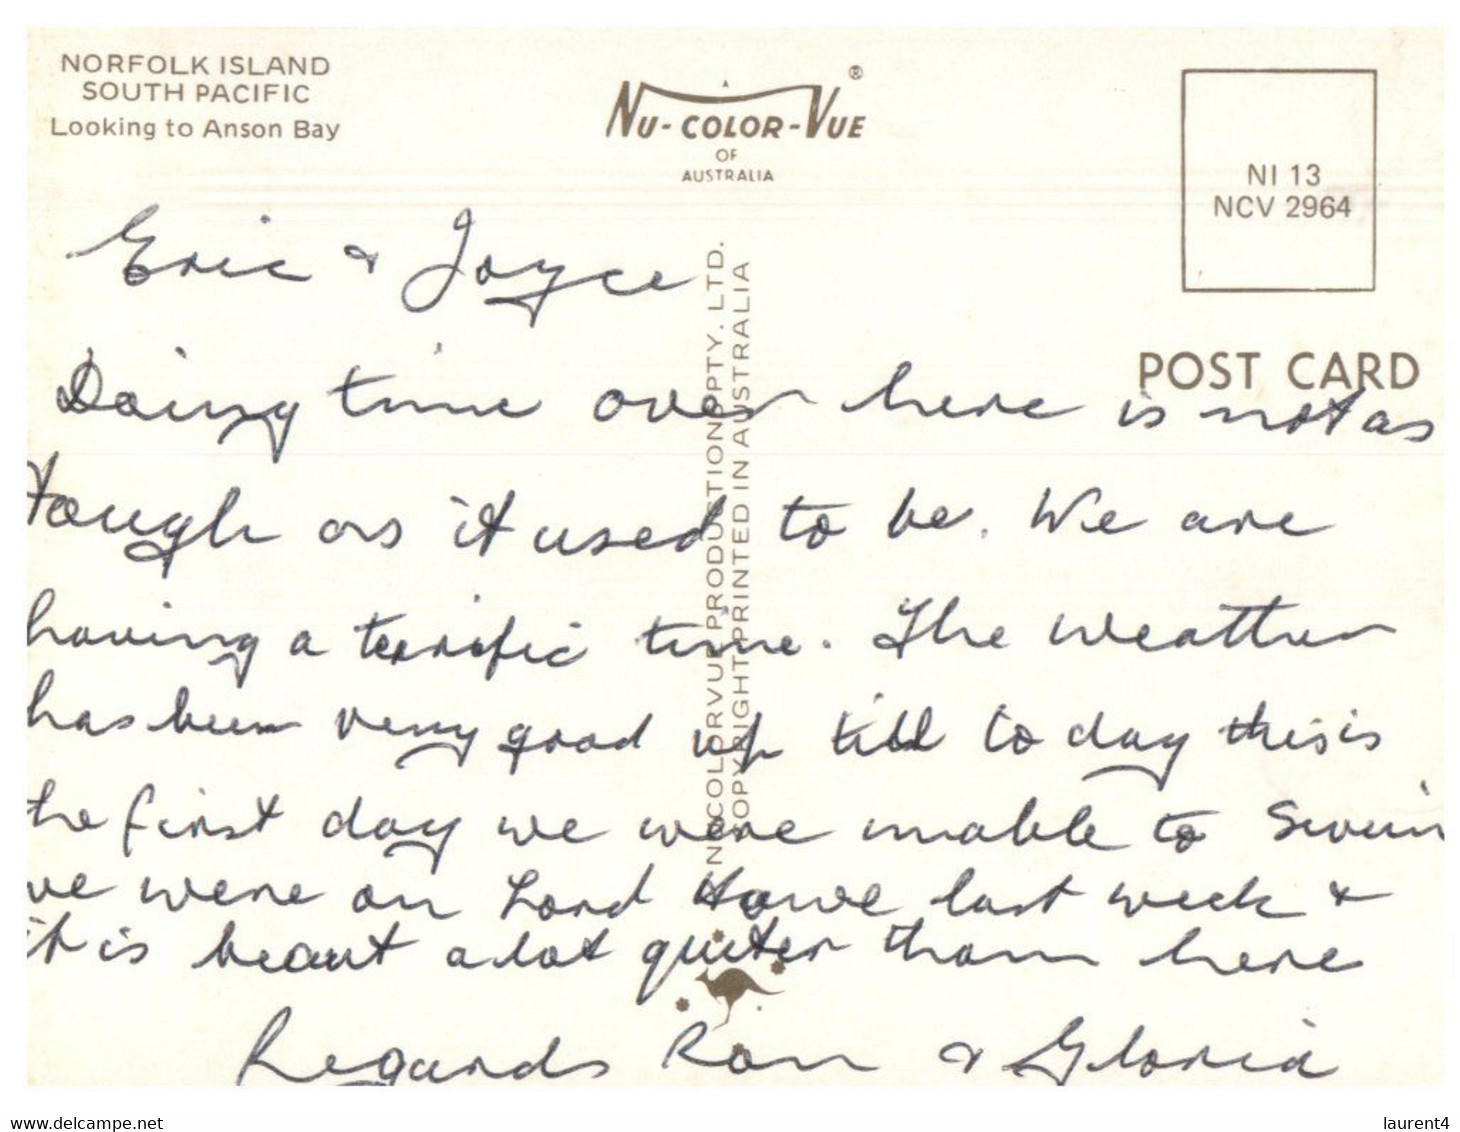 NORFOLK ISLAND
SOUTH PACIFIC
Looking to Anson Bay
A
NU-COLOR-VUE ®
OF
AUSTRALIA
NI 13
NCV 2964
POST CARD
NUCOLORVUE PRODUCTIONS PTY. LTD.
COPYRIGHT PRINTED IN AUSTRALIA
Eric & Joyce
Doing time over here is not as
tough as it used to be. We are
having a terrific time. The weather
has been very good up till to day this is
the first day we were unable to swim
we were on Lord Howe last week &
it is beaut a lot quiter than here
Regards Ron & Gloria
www.delcampe.net
laurent4